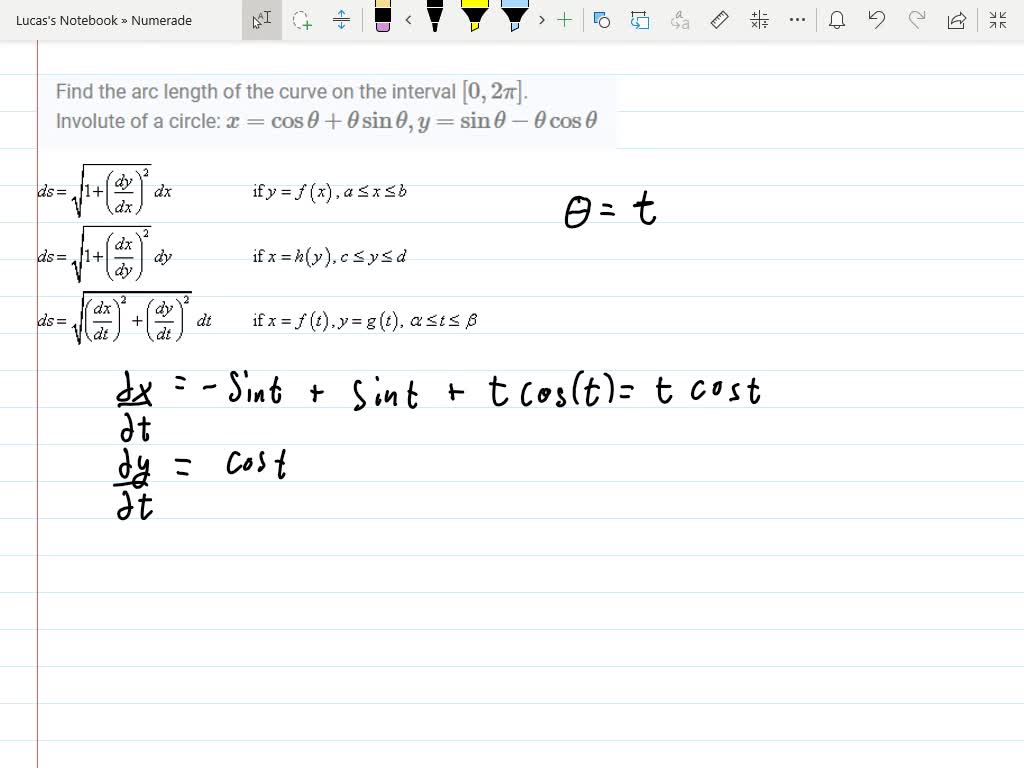 Lucas's Notebook » Numerade
Find the arc length of the curve on the interval [0, 2π].
Involute of a circle: x = cos θ + θ sin θ, y = sin θ − θ cos θ
ds = √(1+(dy/dx)²) dx if y = f(x), a ≤ x ≤ b
θ = t
ds = √(1+(dx/dy)²) dy if x = h(y), c ≤ y ≤ d
ds = √((dx/dt)² + (dy/dt)²) dt if x = f(t), y = g(t), α ≤ t ≤ β
dx/dt = - sin t + sin t + t cos(t) = t cos t
dy/dt = cos t